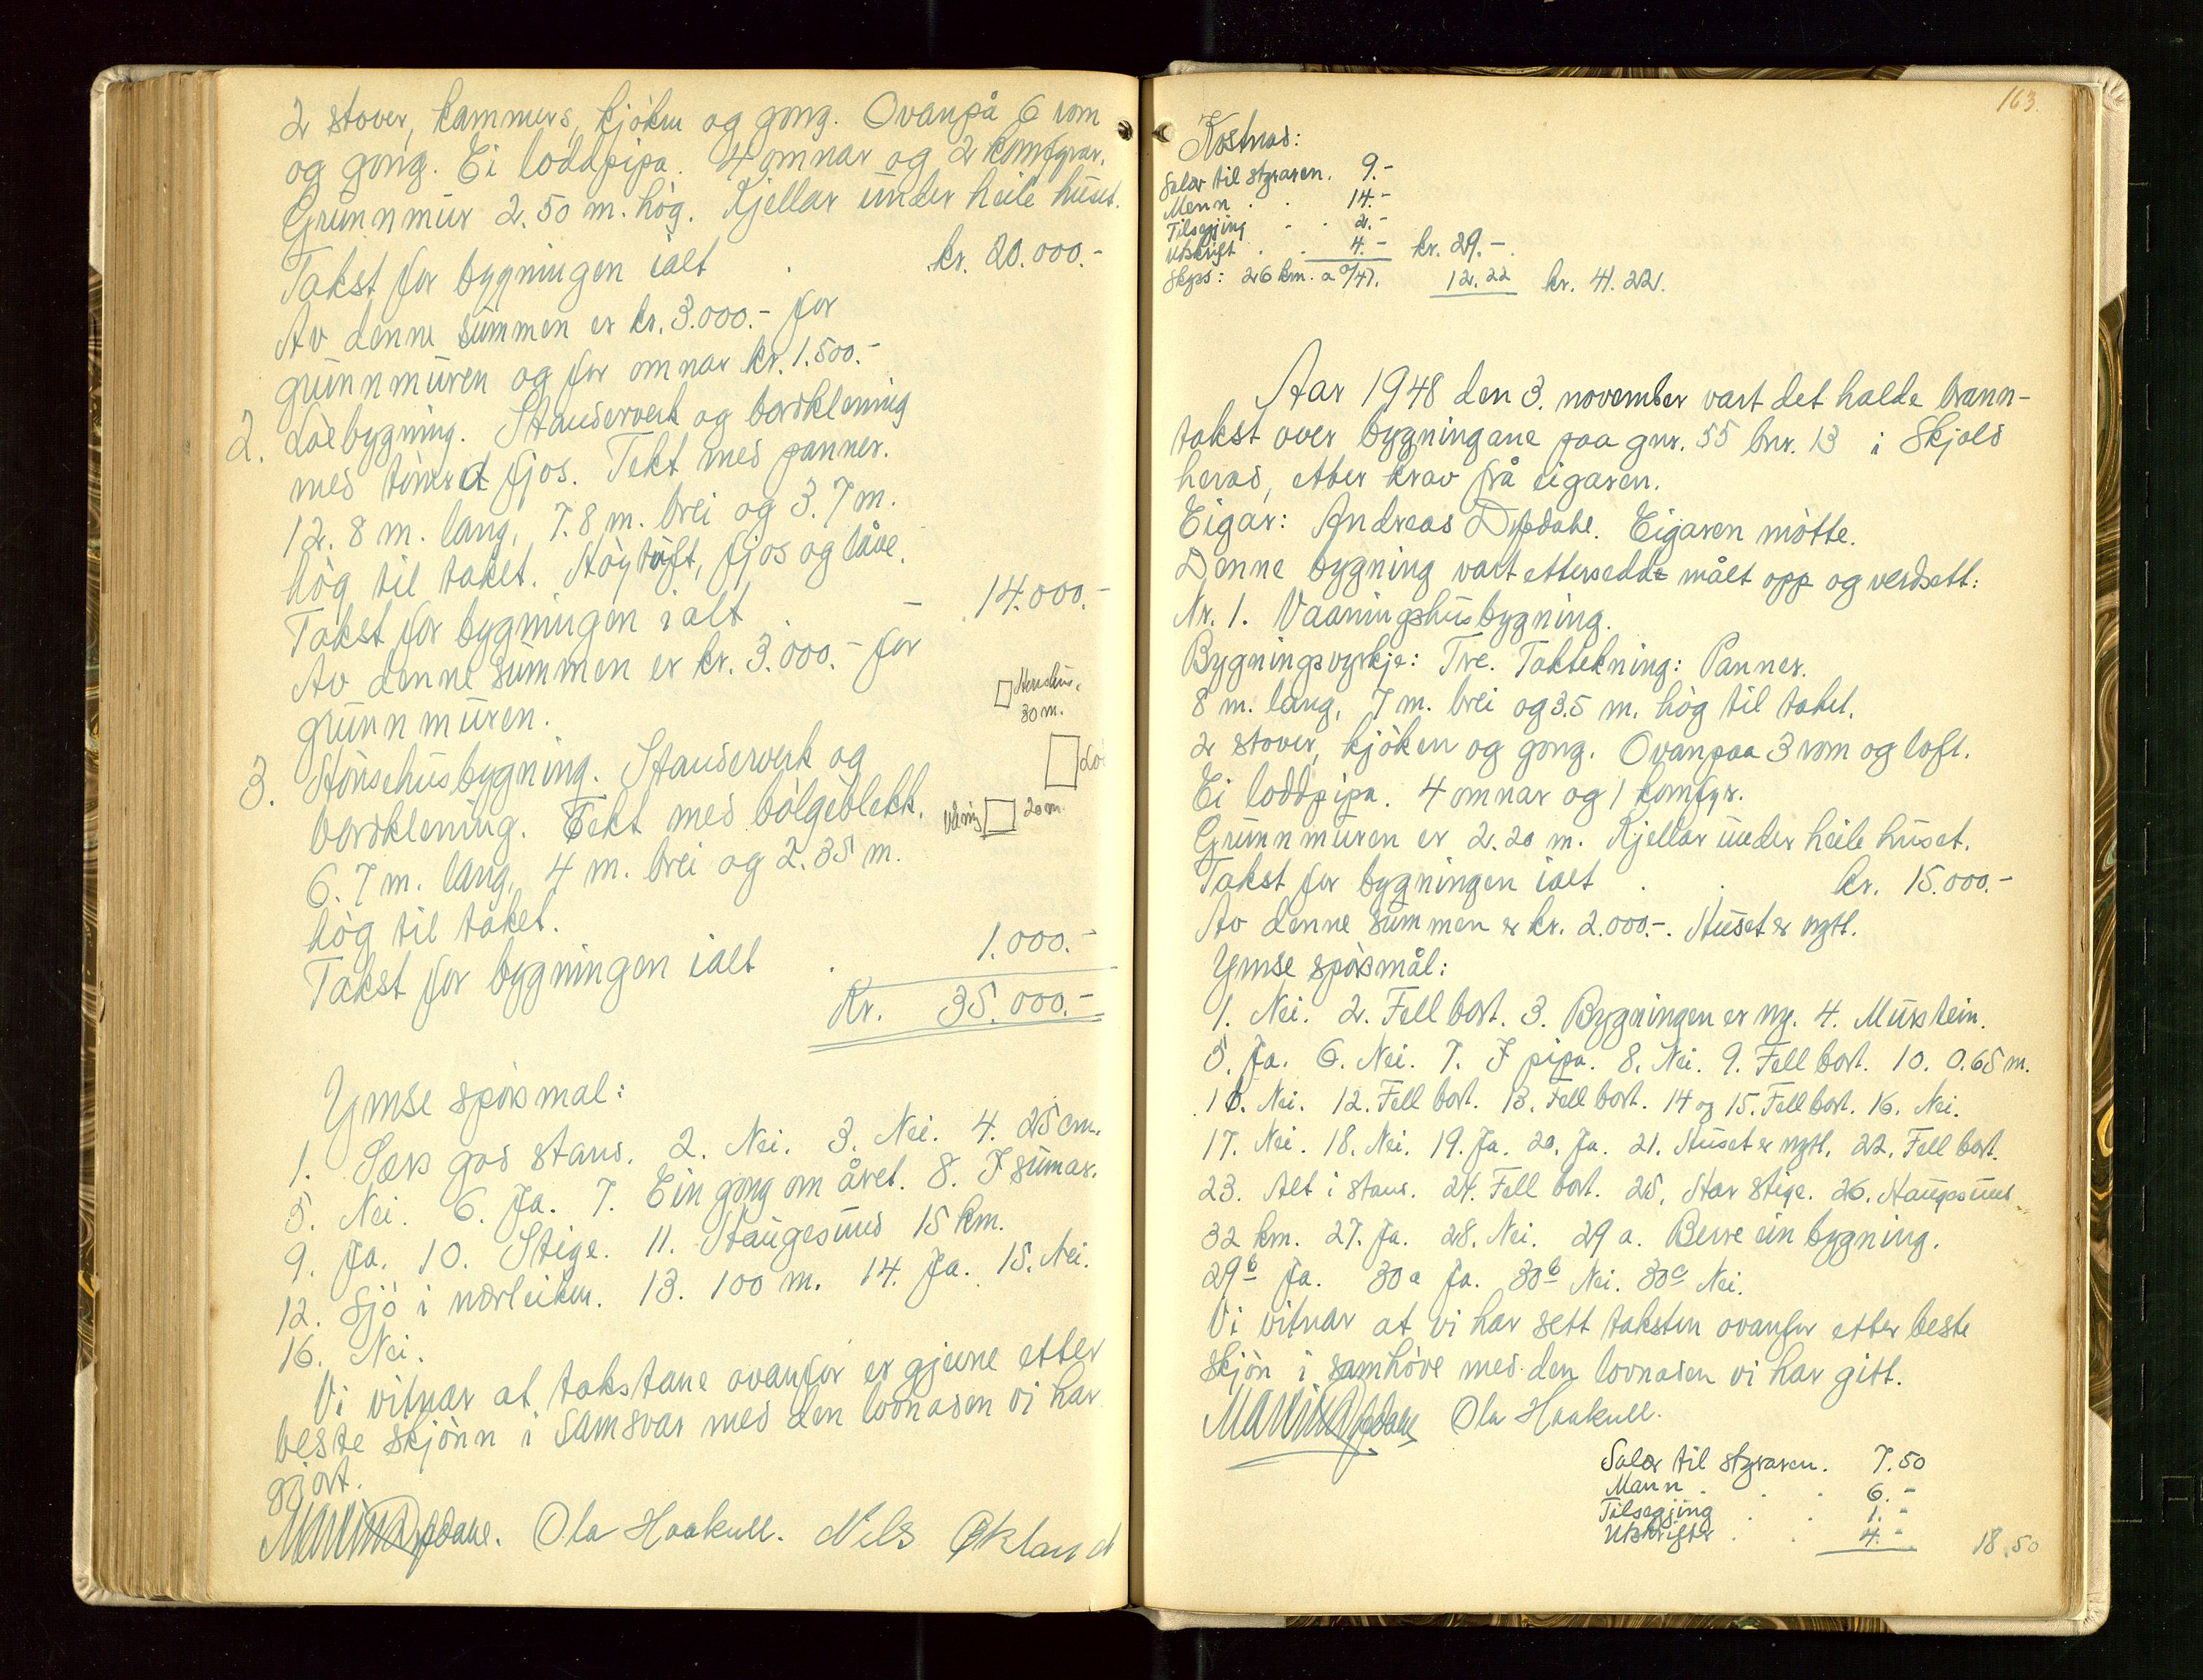 2 stover, kammers, kjöken og gong. Ovanpå 6 rom
og gong. Ei loddpipa. 4 omnar og 2 komfyrar.
Grunnmur 2.50 m. hög. Kjellar under heile huset.
Takst for bygningen ialt . kr. 20.000.-
Av denne summen er kr. 3.000.- for
grunnmuren og for omnar kr. 1.500.-
2. Löebygning. Standerverk og bordklening
med timra fjos. Tekt med panner.
12.8 m. lang, 7.8 m. brei og 3.7 m.
hög til taket. Höytuft, fjos og låve.
Takst for bygningen ialt - 14.000.-
Av denne summen er kr. 3.000.- for
grunnmuren.
3. Hönsehusbygning. Standerverk og
bordklening. Tekt med bölgeblekk.
6.7 m. lang, 4 m. brei og 2.35 m.
hög til taket.
Takst for bygningen ialt . 1.000.-
Kr. 35.000.-
30 m.
Löe
Våning 20 m.
Ymse spörsmal:
1. Særs god stand. 2. Nei. 3. Nei. 4. 25 cm.
5. Nei. 6. Ja. 7. Ein gong om året. 8. I sumar.
9. Ja. 10. Stige. 11. Haugesund 15 km.
12. Sjö i nærleiken. 13. 100 m. 14. Ja. 15. Nei.
16. Nei.
Vi vitnar at takstane ovanfor er gjevne etter
beste skjönn i samsvar med den lovnaden vi har
gjort.
Ola Haakull. Nils Økland
163.
Kostnad:
Salær til styraren. 9.-
Menn . . 14.-
Tilsegjing . . 2.-
Utskrift . . 4.- kr. 29.-
Skyss: 26 km. a 0/47. 12.22 kr. 41.22.
Aar 1948 den 3. november vart det halde brann-
takst over bygningane paa gnr. 55 bnr. 13 i Skjold
herad, etter krav frå eigaren.
Eigar: Andreas Dypdahl. Eigaren mötte.
Denne bygning vart ettersedde målt opp og verdsett:
Nr. 1. Vaaningshusbygning.
Bygningsvyrkje: Tre. Taktekning: Panner.
8 m. lang, 7 m. brei og 3.5 m. hög til taket.
2 stover, kjöken og gong. Ovanpaa 3 rom og loft.
Ei loddpipa. 4 omnar og 1 komfyr.
Grunnmuren er 2.20 m. Kjellar under heile huset.
Takst for bygningen ialt . . kr. 15.000.-
Av denne summen er kr. 2.000.-. Huset er nytt.
Ymse spörsmål:
1. Nei. 2. Fell bort. 3. Bygningen er ny. 4. Murstein.
5. Ja. 6. Nei. 7. I pipa. 8. Nei. 9. Fell bort. 10. 0.65 m.
11. Nei. 12. Fell bort. 13. Fell bort. 14 og 15. Fell bort. 16. Nei.
17. Nei. 18. Nei. 19. Ja. 20. Ja. 21. Huset er nytt. 22. Fell bort.
23. Alt i stand. 24. Fell bort. 25. Har stige. 26. Haugesund
32 km. 27. Ja. 28. Nei. 29 a. Berre ein bygning.
29 b Ja. 30 a Ja. 30 b Nei. 30 c Nei.
Vi vitnar at vi har sett taksten ovanfor etter beste
skjön i samhöve med den lovnaden vi har gitt.
Ola Haakull.
Salær til styraren. 7.50
Mann . . . 6.-
Tilsegjing . . 1.-
Utskrifter . . 4.- 18.50